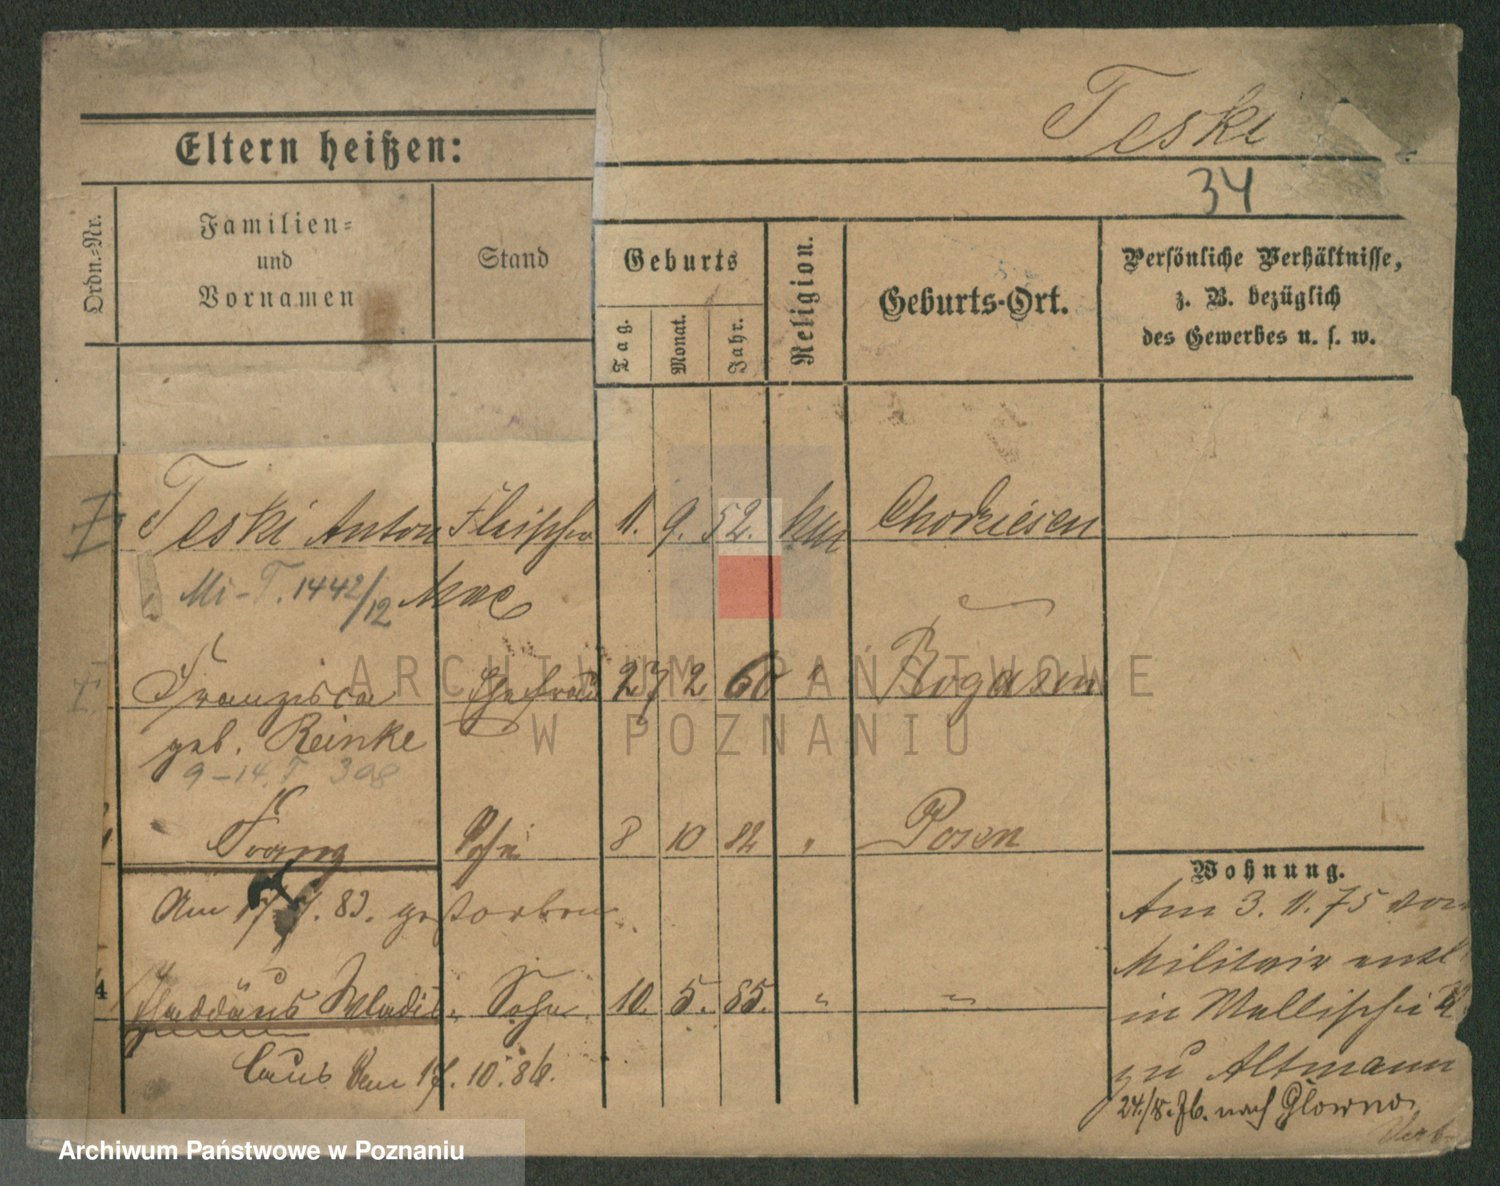 Teski
34
Eltern heißen:
Ordn.-Nr.
Familien-
und
Vornamen
Stand
Geburts
Tag.
Monat.
Jahr.
Religion.
Geburts-Ort.
Persönliche Verhältnisse,
z. B. bezüglich
des Gewerbes u. s. w.
Teski Anton Fleischer 11. 9. 52. Chodziesen
Mi-T. 1442/12
Franziska Ehefrau 27 2 60 " Rogasen
geb. Reinke
9-14. T 398
Franz Sohn 8 10 82 " Posen
Am 17 . 83. gestorben
4 Thaddäus Wladis- Sohn 10. 5. 85. " "
laus 17. 10. 86.
Wohnung.
Am 3. 11. 75 vom
Militair entl
in Wallischei
zu Altmann
24./8. 76. nach Glowno.
ARCHIWUM PAŃSTWOWE
W POZNANIU
Archiwum Państwowe w Poznaniu